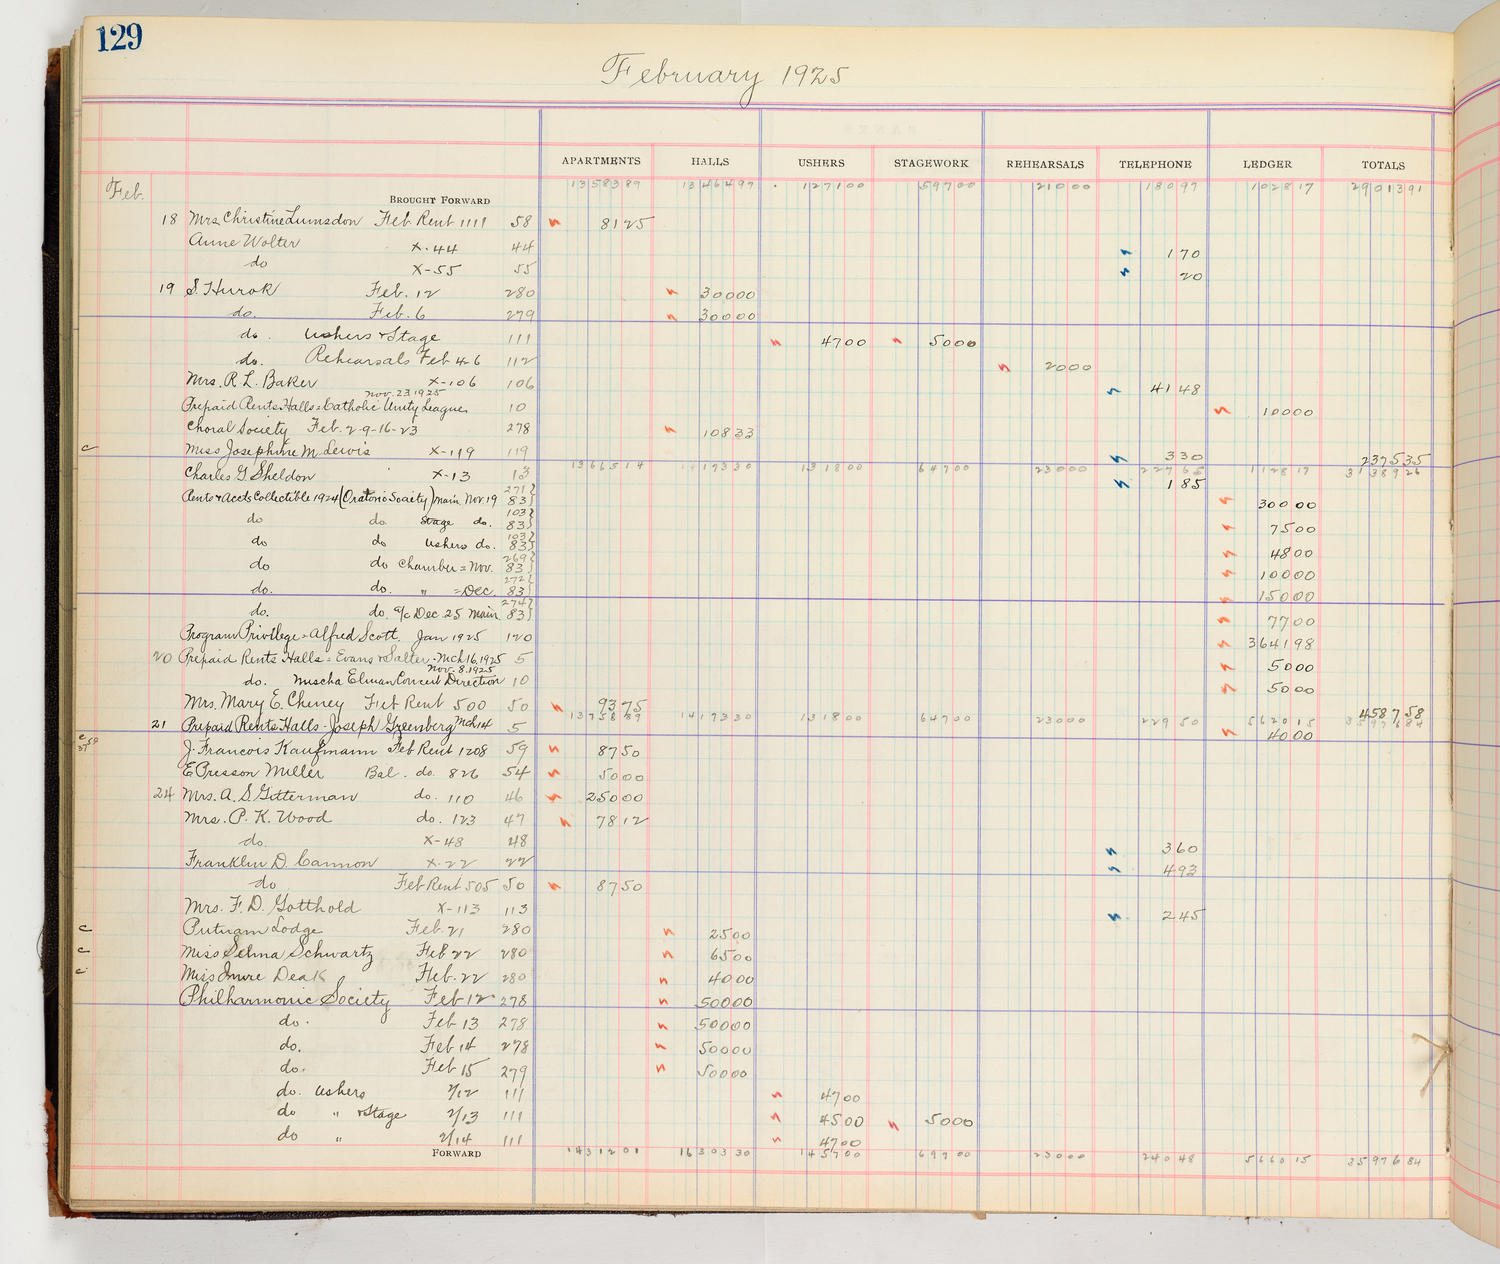 129
February 1925
APARTMENTS HALLS USHERS STAGEWORK REHEARSALS TELEPHONE LEDGER TOTALS
Feb. BROUGHT FORWARD 1358389 1346497 127100 59700 21000 18097 102817 2901391
18 Mrs. Christine Lumsdon Feb Rent 1111 58 8125
Anne Wolter X-44 44 170
do X-55 55 20
19 S. Hurok Feb. 12 280 30000
do. Feb. 6 279 30000
do. Ushers & Stage 111 4700 5000
do. Rehearsals Feb 4-6 112 2000
Mrs. R. L. Baker X-106 106 4148
Nov. 23 1925
Prepaid Rents Halls = Catholic Unity League 10 10000
Choral Society Feb. 2-9-16-23 278 10833
c Miss Josephine M. Lewis X-119 119 330 237535
1366514 1419330 131800 64700 23000 22765 112817 3138926
Charles G. Sheldon X-13 13 185
Rents & Accts Collectible 1924 (Oratorio Society) Main Nov 19 271 83 30000
do do Stage do. 103 83 7500
do do Ushers do. 103 83 4800
do do Chamber = Nov. 269 83 10000
do. do. " = Dec. 272 83 15000
do. do. a/c Dec. 25 Main 274 83 7700
Program Privilege = Alfred Scott. Jan 1925 120 364198
20 Prepaid Rents Halls = Evans & Salter - Mch 16, 1925 5 5000
Nov. 8. 1925
do. Mischa Elman Concert Direction 10 5000
Mrs. Mary E. Cheney Feb Rent 500 50 9375 458758
1375889 1419330 131800 64700 23000 22950 562015 3597684
21 Prepaid Rents Halls - Joseph Greenberg Mch 14 5 4000
c J. Francois Kaufmann Feb Rent 1208 59 8750
E Presson Miller Bal. do. 826 54 5000
24 Mrs. A. S. Gitterman do. 110 46 25000
Mrs. P. K. Wood do. 123 47 7812
do. X-48 48 360
Franklin D. Cannon X-22 22 493
do Feb Rent 505 50 8750
Mrs. F. D. Gotthold X-113 113 245
c Putnam Lodge Feb. 21 280 2500
c Miss Selma Schwartz Feb 22 280 6500
c Miss Imre Deak Feb. 22 280 4000
Philharmonic Society Feb 12 278 50000
do. Feb 13 278 50000
do. Feb 14 278 50000
do. Feb 15 279 50000
do. Ushers 2/12 111 4700
do " & Stage 2/13 111 4500 5000
do " 2/14 111 4700
FORWARD 1431201 1630330 145700 69700 23000 24048 566015 3597684